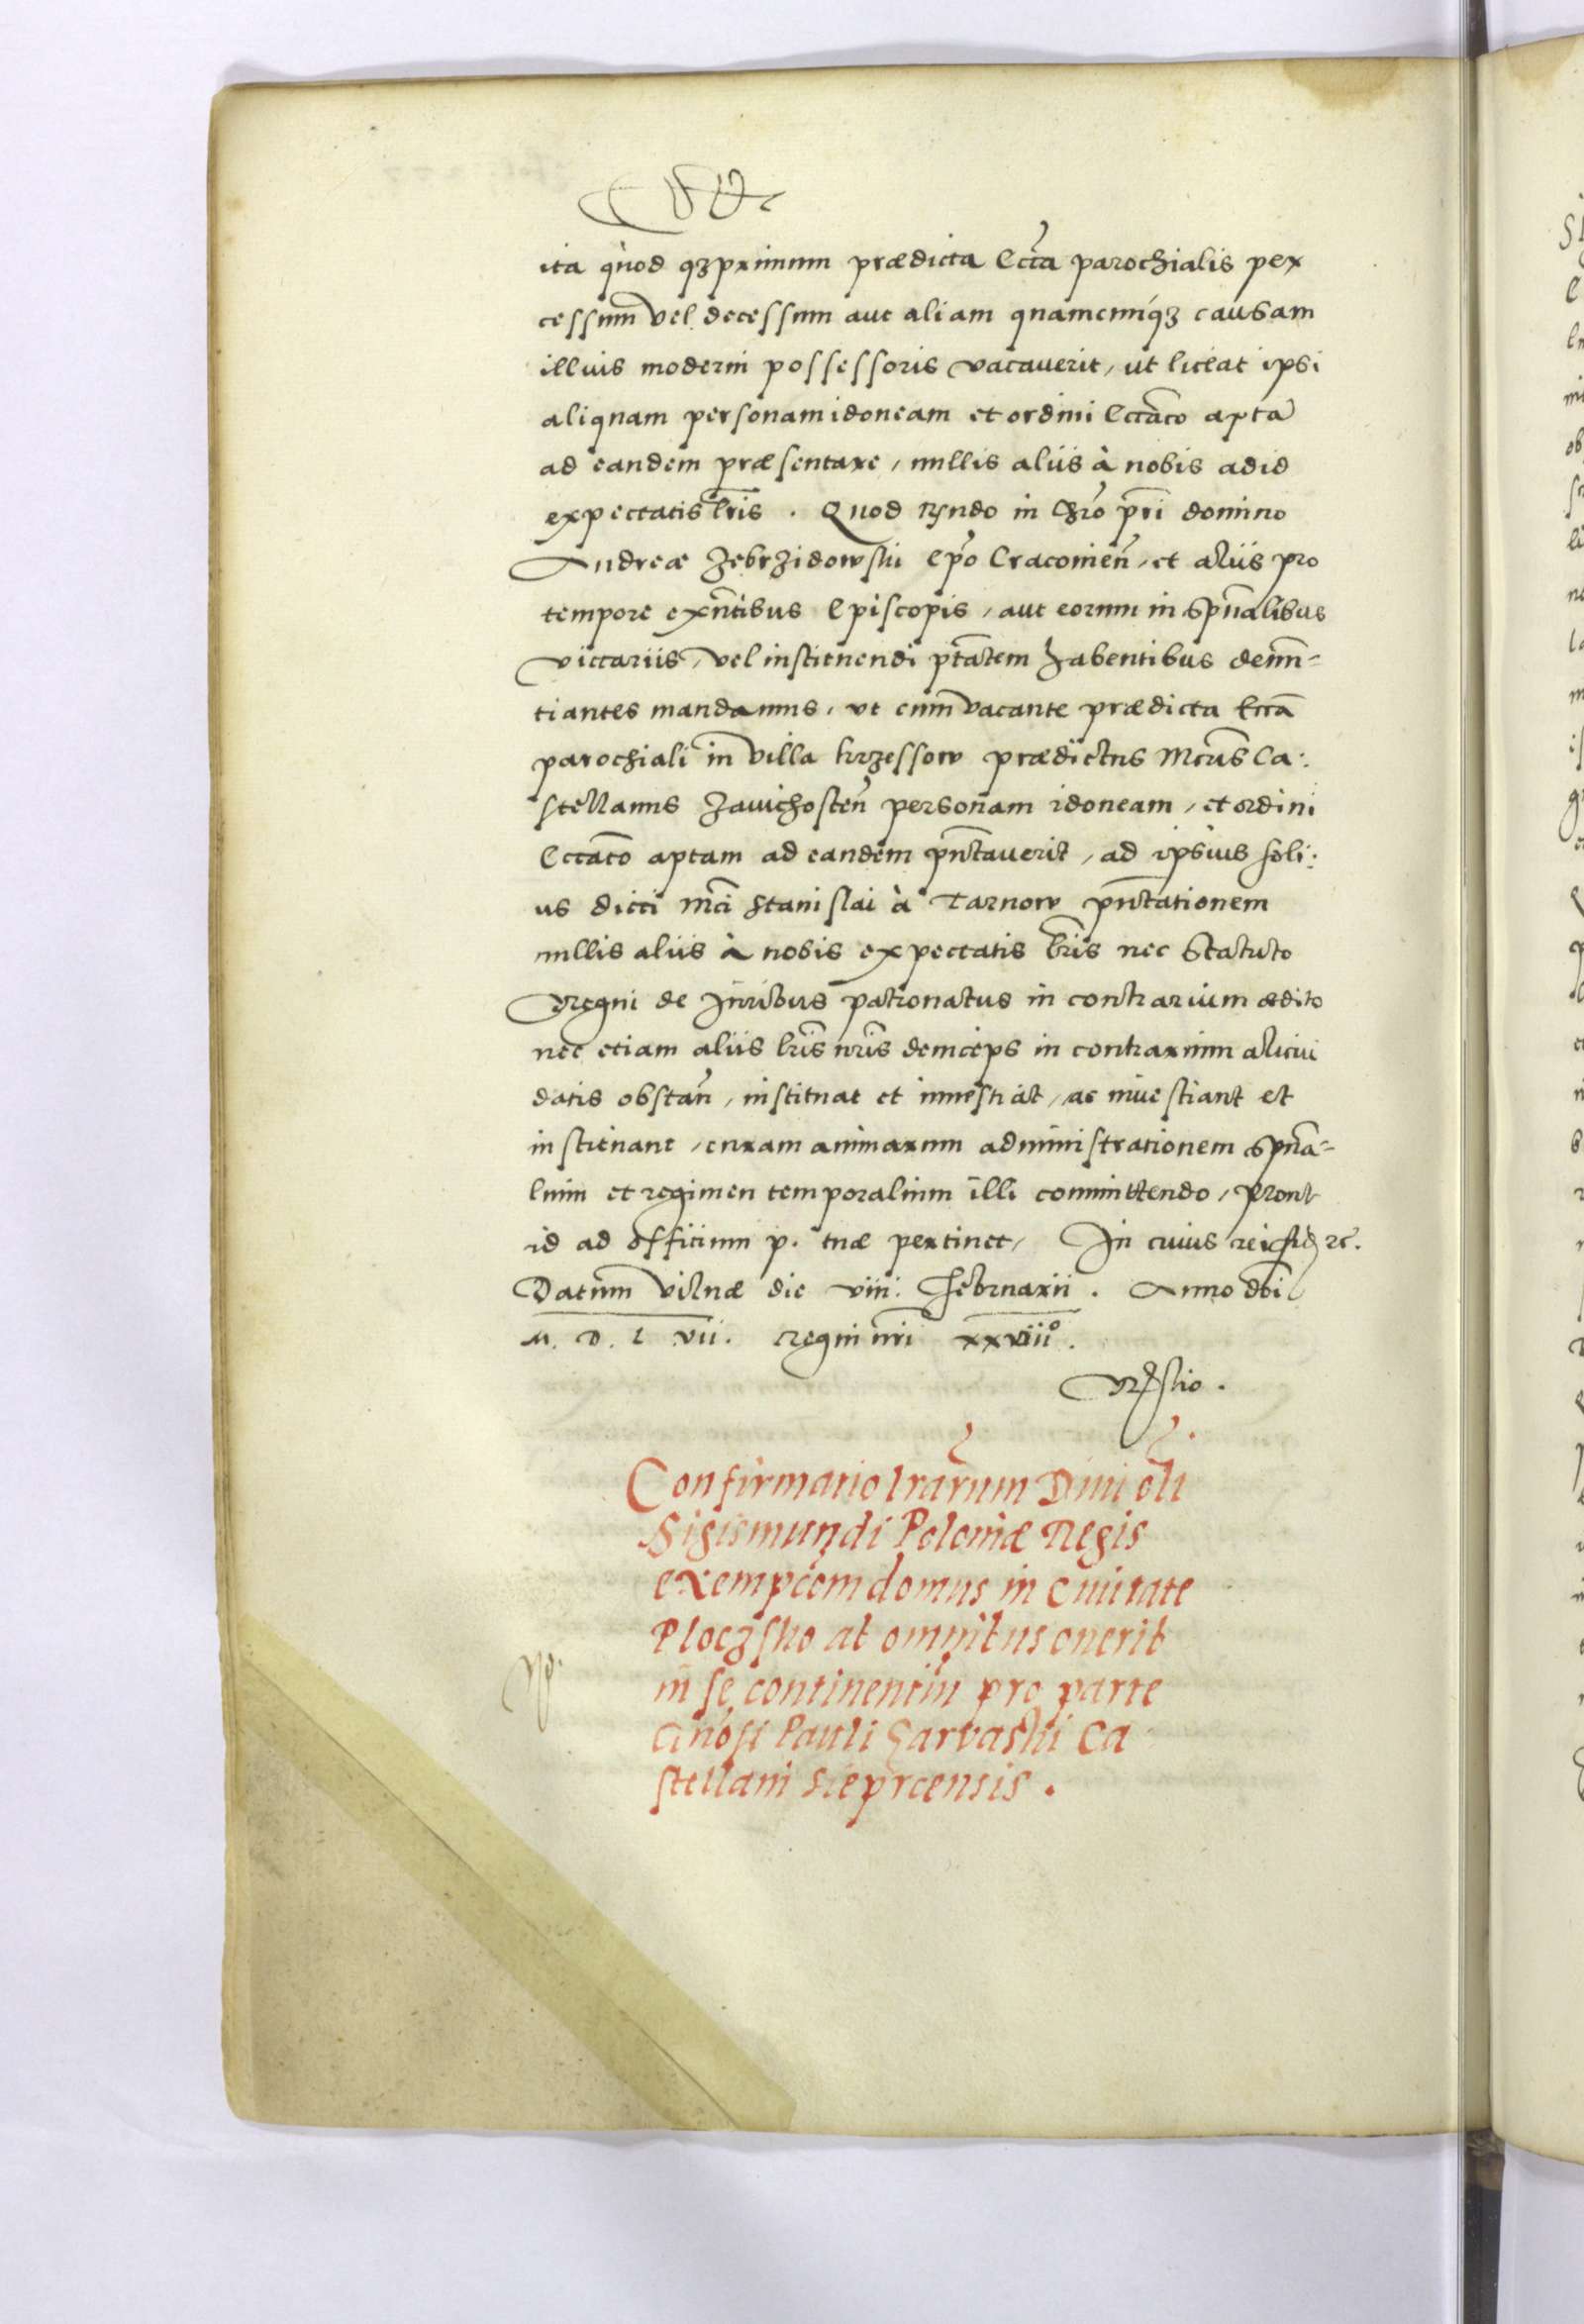 ita quod qzprimum prædicta Eccia parochialis per
cessum vel decessum aut aliam quamcunqz causam
illius moderni possessoris vacaverit, ut liceat ipsi
aliquam personam idoneam et ordini Ecctaco apta
ad eandem præsentare, nullis aliis à nobis ad id
expectatis lris. Quod Rndo in Chro pri domino
Andreæ Zebrzidowski Epo Cracovien, et aliis pro
tempore exntibus Episcopis, aut eorum in Spualibus
viccariis, vel instituendi ptatem habentibus denun-
tiantes mandamus, ut cum vacante prædicta Ecca
parochiali in villa krzessow prædictus Mcus Ca:
stellanus Zavichosten personam idoneam, et ordini
Ecctaco aptam ad eandem pntaverit, ad ipsius soli:
us dicti Mci Stanislai à Tarnow pntationem
nullis aliis à nobis expectatis lris nec Statuto
Regni de Iuribus patronatus in contrarium ædito
nec etiam aliis lris nris deinceps in contrarium alicui
datis obstan, instituat et investiat, ac investiant et
instituant, curam animarum administrationem spua-
lium et regimen temporalium illi committendo, prout
id ad officium p. tuæ pertinet, In cuius rei fid rc.
Datum Vilnæ die viii. Februarii. Anno dni
M. D. L vii. Regni nri xxviii°.
Confirmatio lrarum Divi oli
Sigismundi Poloniæ Regis
exempcem domus in Civitate
Ploczsko ab omnibus onerib
in se continentiu pro parte
Gnosi Pauli Garvaski Ca
stellani Sieprcensis.